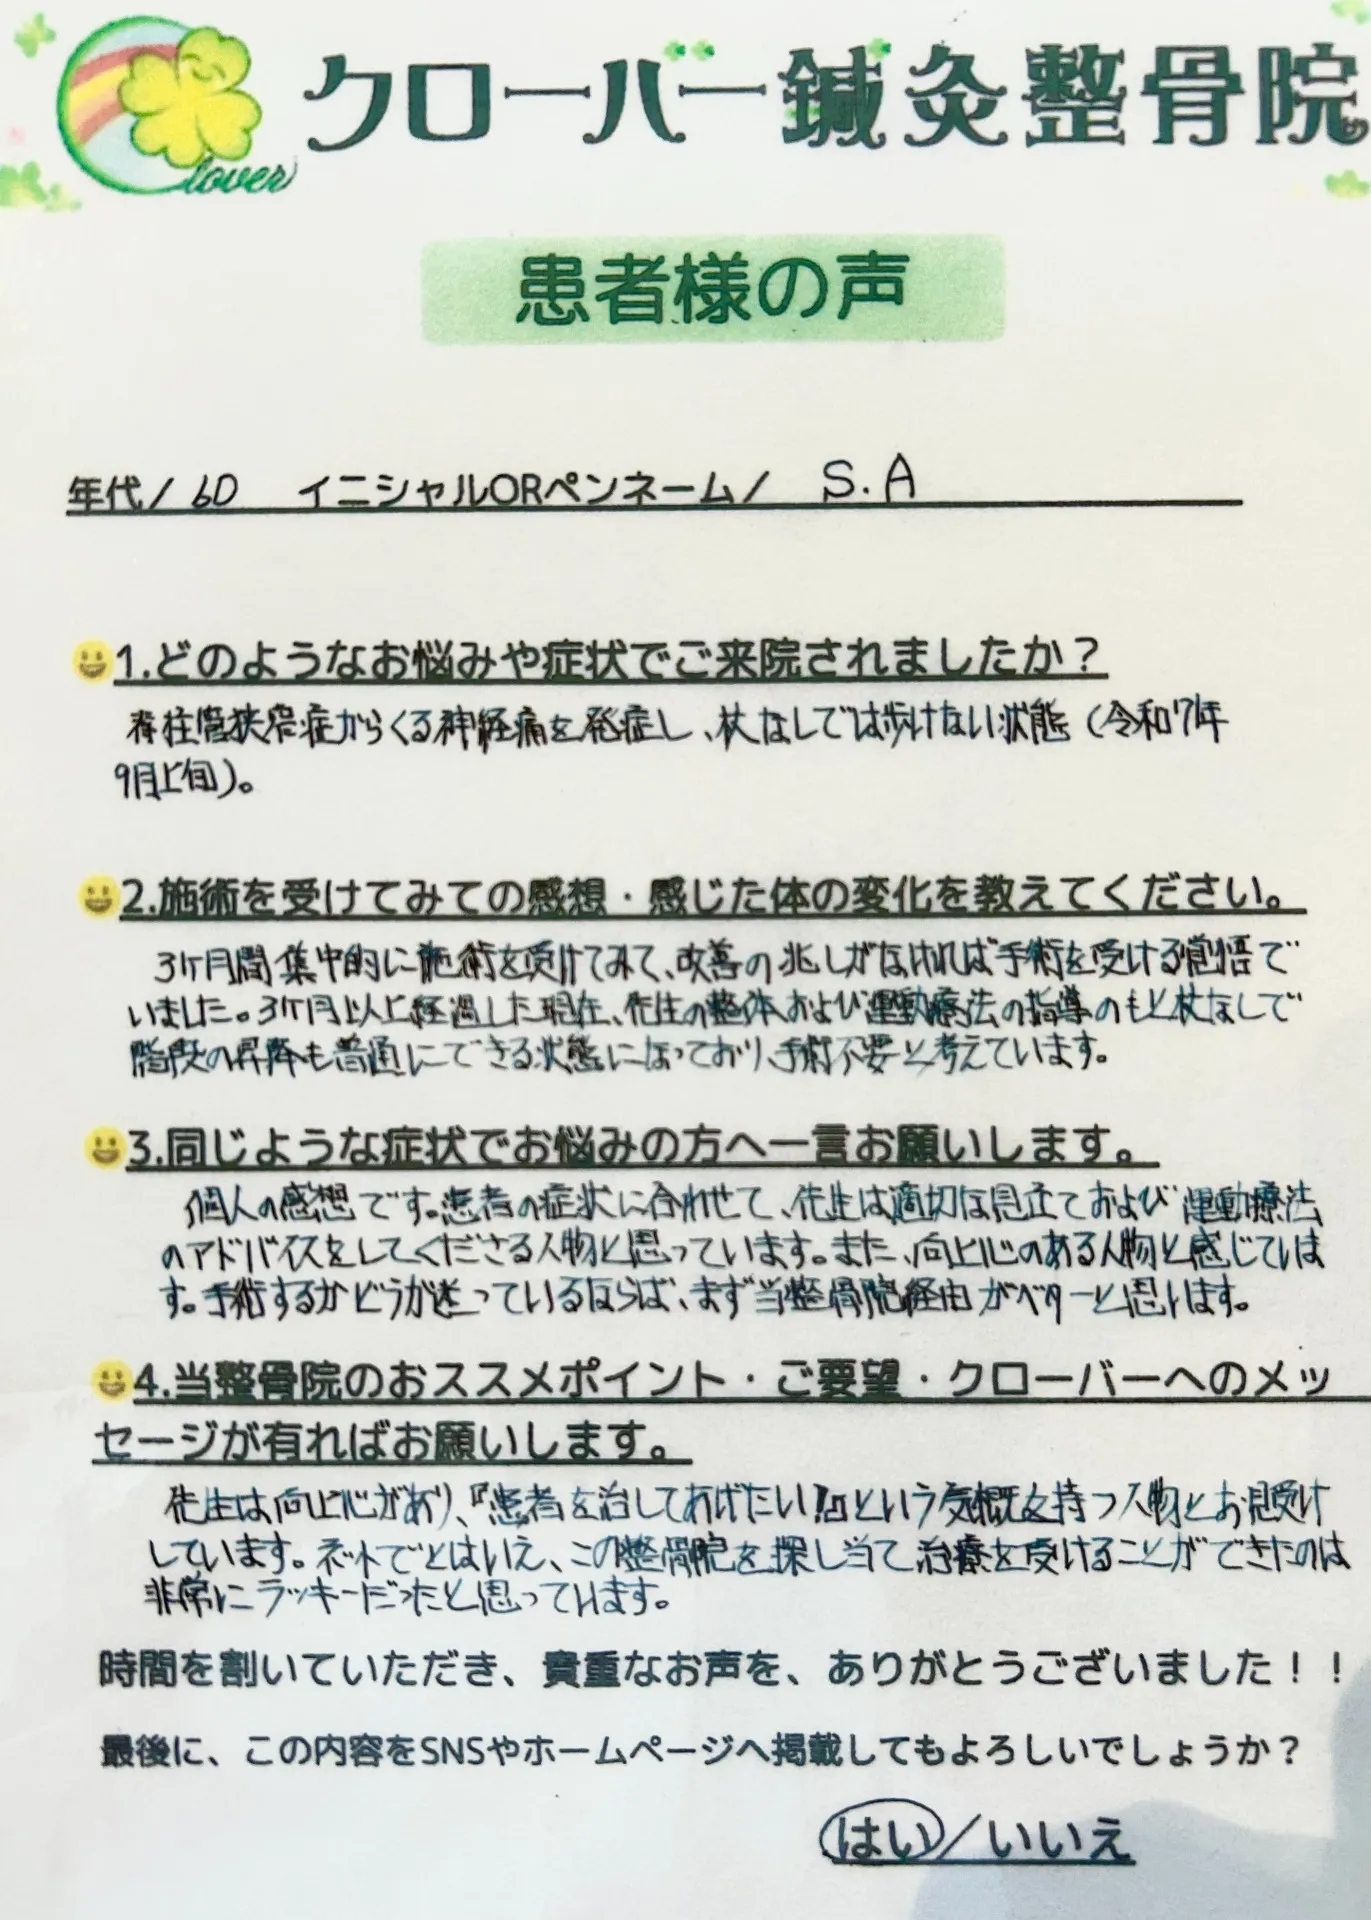 clover
クローバー鍼灸整骨院
患者様の声
年代/60 イニシャルORペンネーム/ S.A
1.どのようなお悩みや症状でご来院されましたか？
脊柱管狭窄症からくる神経痛を発症し、杖なしでは歩けない状態（令和7年
9月上旬)。
2.施術を受けてみての感想・感じた体の変化を教えてください。
3ケ月間集中的に施術を受けてみて、改善の兆しがなければ手術を受ける覚悟で
いました。3ケ月以上経過した現在、先生の整体および運動療法の指導のもと杖なしで
階段の昇降も普通にできる状態になっており、手術不要と考えています。
3.同じような症状でお悩みの方へ一言お願いします。
個人の感想です。患者の症状に合わせて、先生は適切な見立ておよび運動療法
のアドバイスをしてくださる人物と思っています。また、向上心のある人物と感じていま
す。手術するかどうか迷っているならば、まず当整骨院経由がベターと思います。
4.当整骨院のおススメポイント・ご要望・クローバーへのメッ
セージが有ればお願いします。
先生は向上心があり、『患者を治してあげたい!』という気概を持つ人物とお見受け
しています。ネットでとはいえ、この整骨院を探し当て治療を受けることができたのは
非常にラッキーだったと思っています。
時間を割いていただき、貴重なお声を、ありがとうございました！！
最後に、この内容をSNSやホームページへ掲載してもよろしいでしょうか？
はい/いいえ